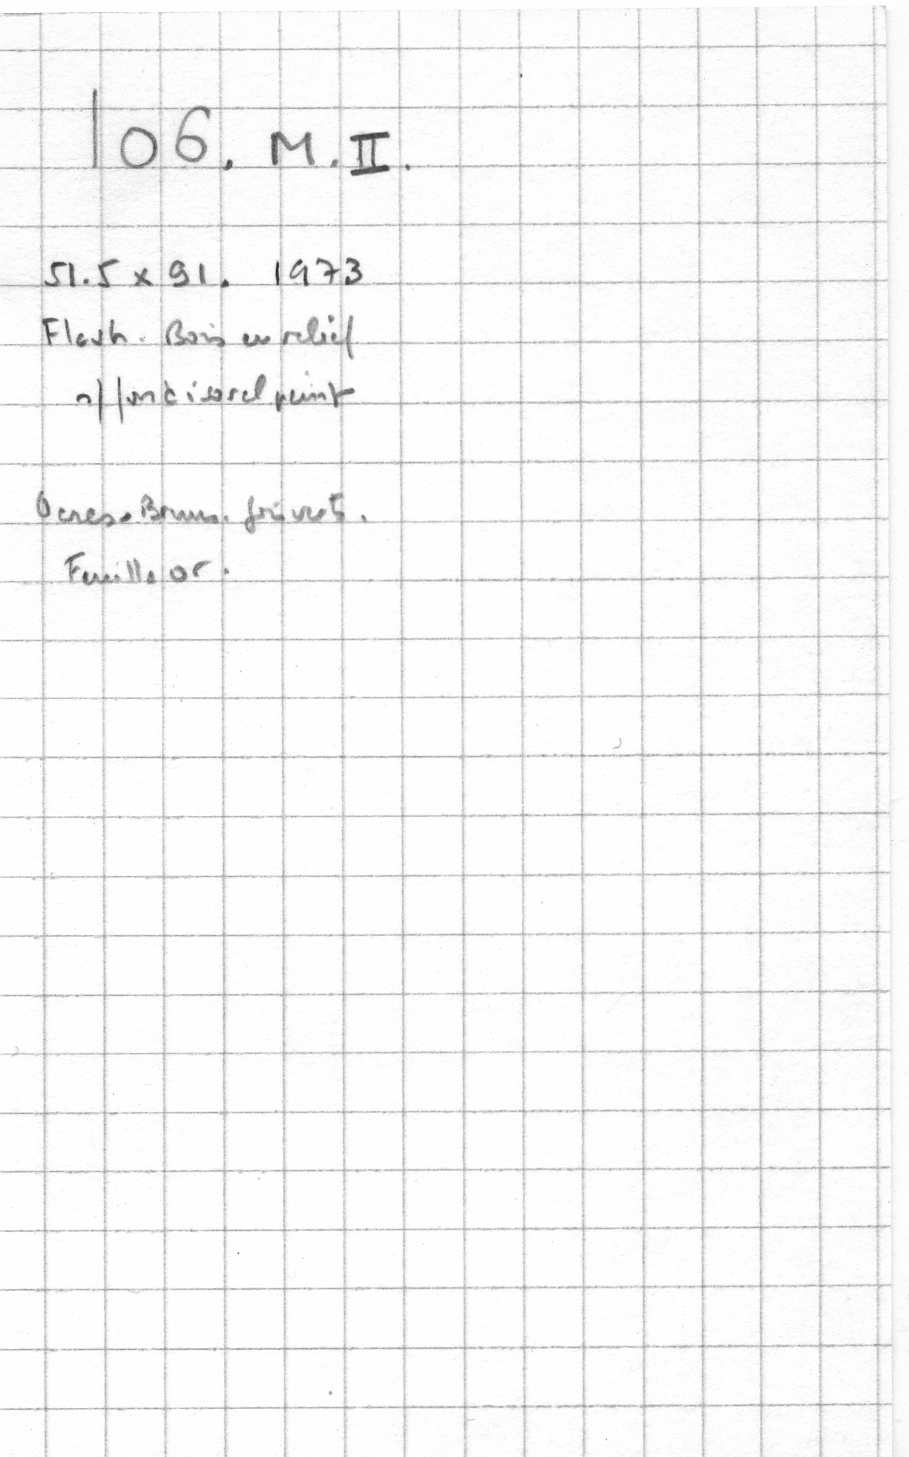 106. M. II.
51.5 x 91. 1973
Flash. Bois en relief
s/fond isorel peint
Ocres. Bruns. gris vert.
Feuille or.